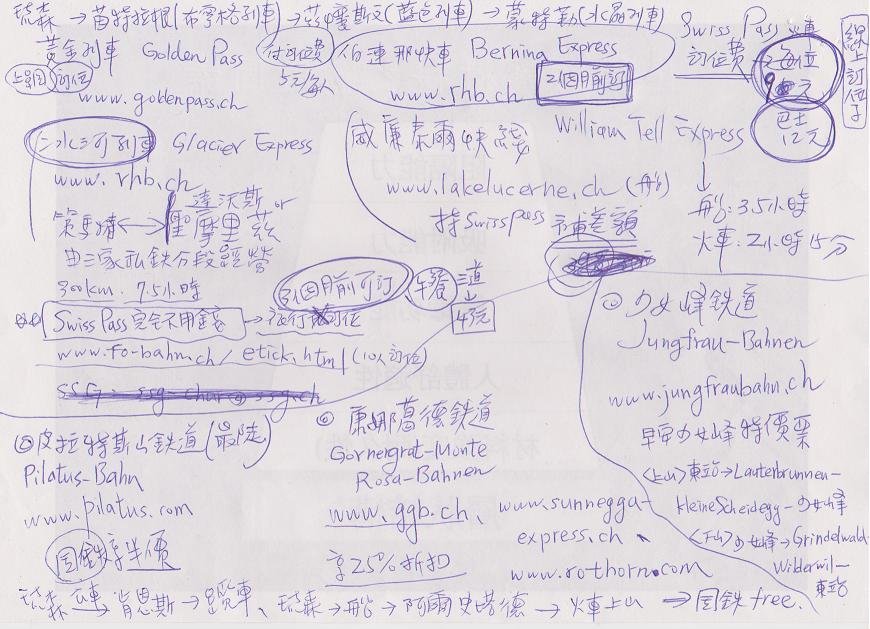 琉森 → 茵特拉根(布寧格列車) → 茲懷斯文(藍色列車) → 蒙特勒(水晶列車)
黃金列車 Golden Pass
付訂位費
5元/每人
上網 訂位
www.goldenpass.ch
伯連那快車 Bernina Express
www.rhb.ch
2個月前訂
Swiss Pass 火車
訂位費 → 每位
9元
巴士
12元
線上訂位子
冰河列車 Glacier Express
www.rhb.ch
達沃斯 or
策馬特 ←→ 聖摩里茲
由三家私鐵分段經營
300km. 7.5小時
3個月前可訂
午餐 三道
43元
Swiss Pass 完全不用錢 → 旅行 訂位
www.fo-bahn.ch/etick.html (10人訂位)
ssg-char@ssg.ch
威廉泰爾快線 William Tell Express
www.lakelucerne.ch (船)
持Swisspass 補差額
船: 3.5小時
火車: 2小時15分
少女峰鐵道
Jungfrau-Bahnen
www.jungfraubahn.ch
早安少女峰特價票
<上山> 東站→Lauterbrunnen-
kleineScheidegg-少女峰
<下山> 少女峰→Grindelwald-
Wilderwil-
東站
皮拉特斯山鐵道(最陡)
Pilatus-Bahn
www.pilatus.com
國鐵享半價
康娜葛德鐵道
Gornergrat-Monte
Rosa-Bahnen
www.ggb.ch、
www.sunnegga-
express.ch、
www.rothorn.com
享25%折扣
琉森 → 肯恩斯 → 纜車、琉森 → 船 → 阿爾史塔德 → 火車上山 → 國鐵 free.